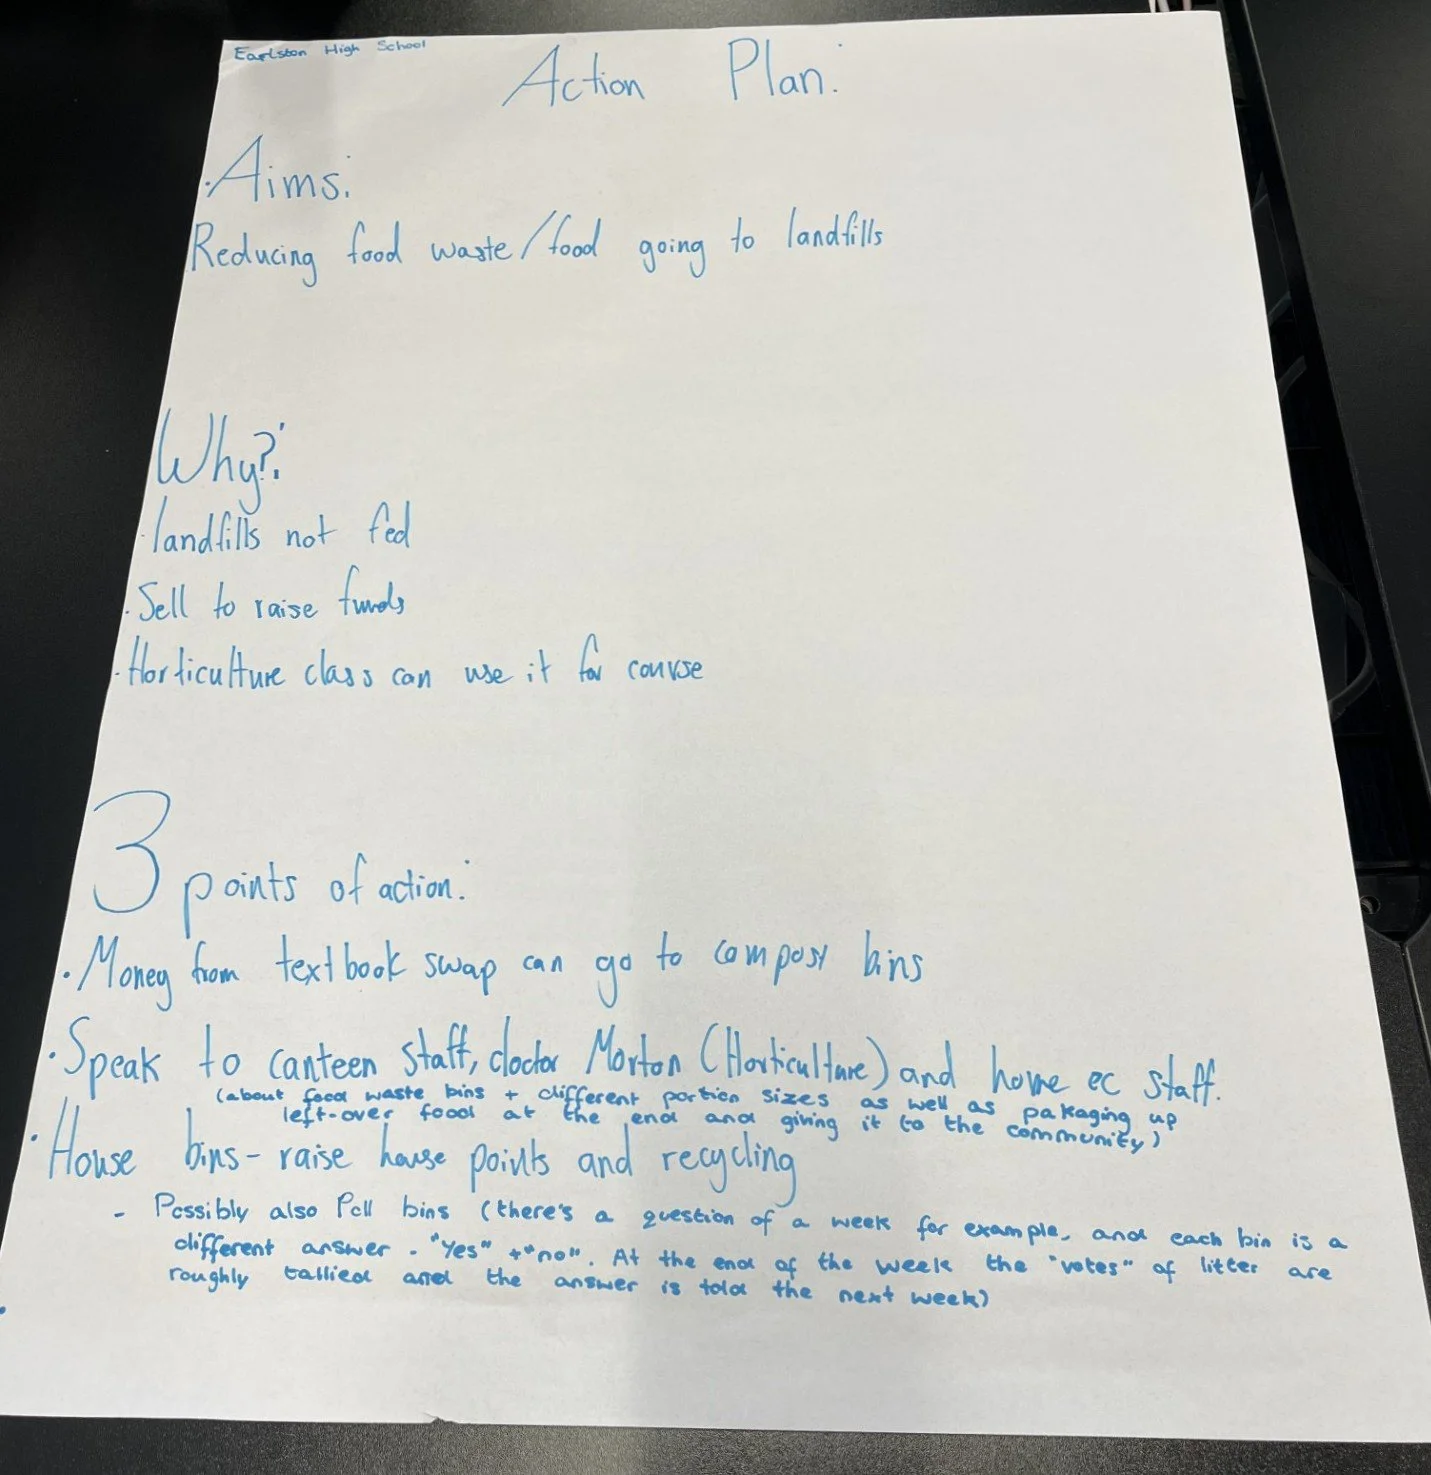 Earlston High School
Action Plan:
·Aims:
Reducing food waste/food going to landfills
Why?:
·landfills not fed
·Sell to raise funds
·Horticulture class can use it for course
3 points of action:
·Money from textbook swap can go to compost bins
·Speak to canteen staff, doctor Morton (Horticulture) and home ec staff.
(about food waste bins + different portion sizes as well as pakaging up
left-over food at the end and giving it to the community)
·House bins- raise house points and recycling
- Possibly also Poll bins (there's a question of a week for example, and each bin is a
different answer - "Yes" + "no". At the end of the week the "votes" of litter are
roughly tallied and the answer is told the next week)